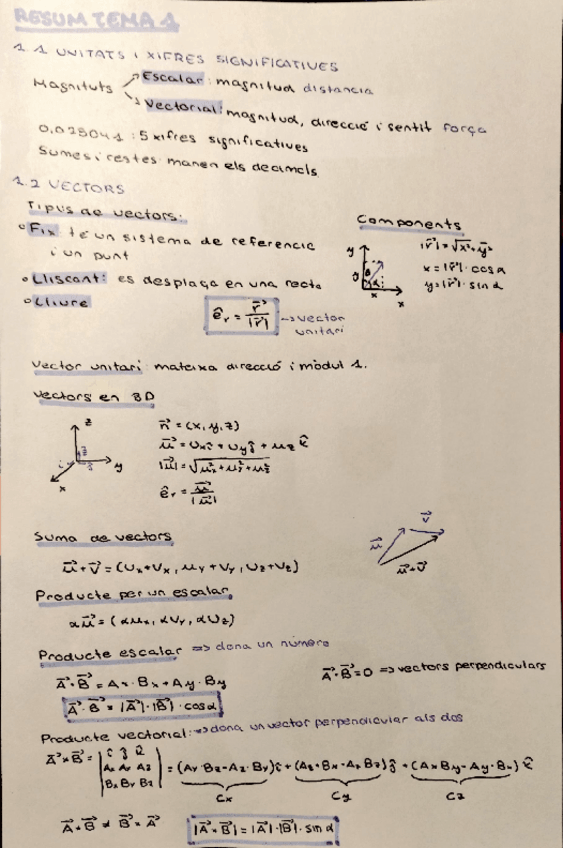 RESUM TEMA 1
1.1 UNITATS I XIFRES SIGNIFICATIVES
Magnituts
Escalar: magnitud distància
Vectorial: magnitud, direcció i sentit força
0,028041 : 5 xifres significatives
Sumes i restes: manen els decimals
1.2 VECTORS
Tipus de vectors:
Fix: té un sistema de referència
i un punt
Lliscant: es desplaça en una recta
Lliure
Components
y
x
α
|r⃗| = √x²+y²
x = |r⃗| · cos α
y = |r⃗| · sin α
ê_r = r⃗/|r⃗| → vector
unitari
Vector unitari: mateixa direcció i mòdul 1.
Vectors en 3D
z
y
x
r⃗ = (x, y, z)
u⃗ = Ux î + Uy ĵ + uz k̂
|u⃗| = √ux²+uy²+uz²
ê_r = u⃗/|u⃗|
Suma de vectors
u⃗ + v⃗ = (Ux+Vx, uy+Vy, Uz+Vz)
u⃗
v⃗
u⃗+v⃗
Producte per un escalar
αu⃗ = (αux, αUy, αUz)
Producte escalar => dona un número
A⃗·B⃗ = Ax·Bx + Ay·By
A⃗·B⃗ = 0 => vectors perpendiculars
A⃗·B⃗ = |A⃗|·|B⃗|·cos α
Producte vectorial: => dona un vector perpendicular als dos
A⃗×B⃗ = |î ĵ k̂
Ax Ay Az
Bx By Bz| = (Ay·Bz-Az·By)î + (Az·Bx-Ax·Bz)ĵ + (Ax·By-Ay·Bx)k̂
Cx Cy Cz
A⃗×B⃗ ≠ B⃗×A⃗
|A⃗×B⃗| = |A⃗|·|B⃗|·sin α